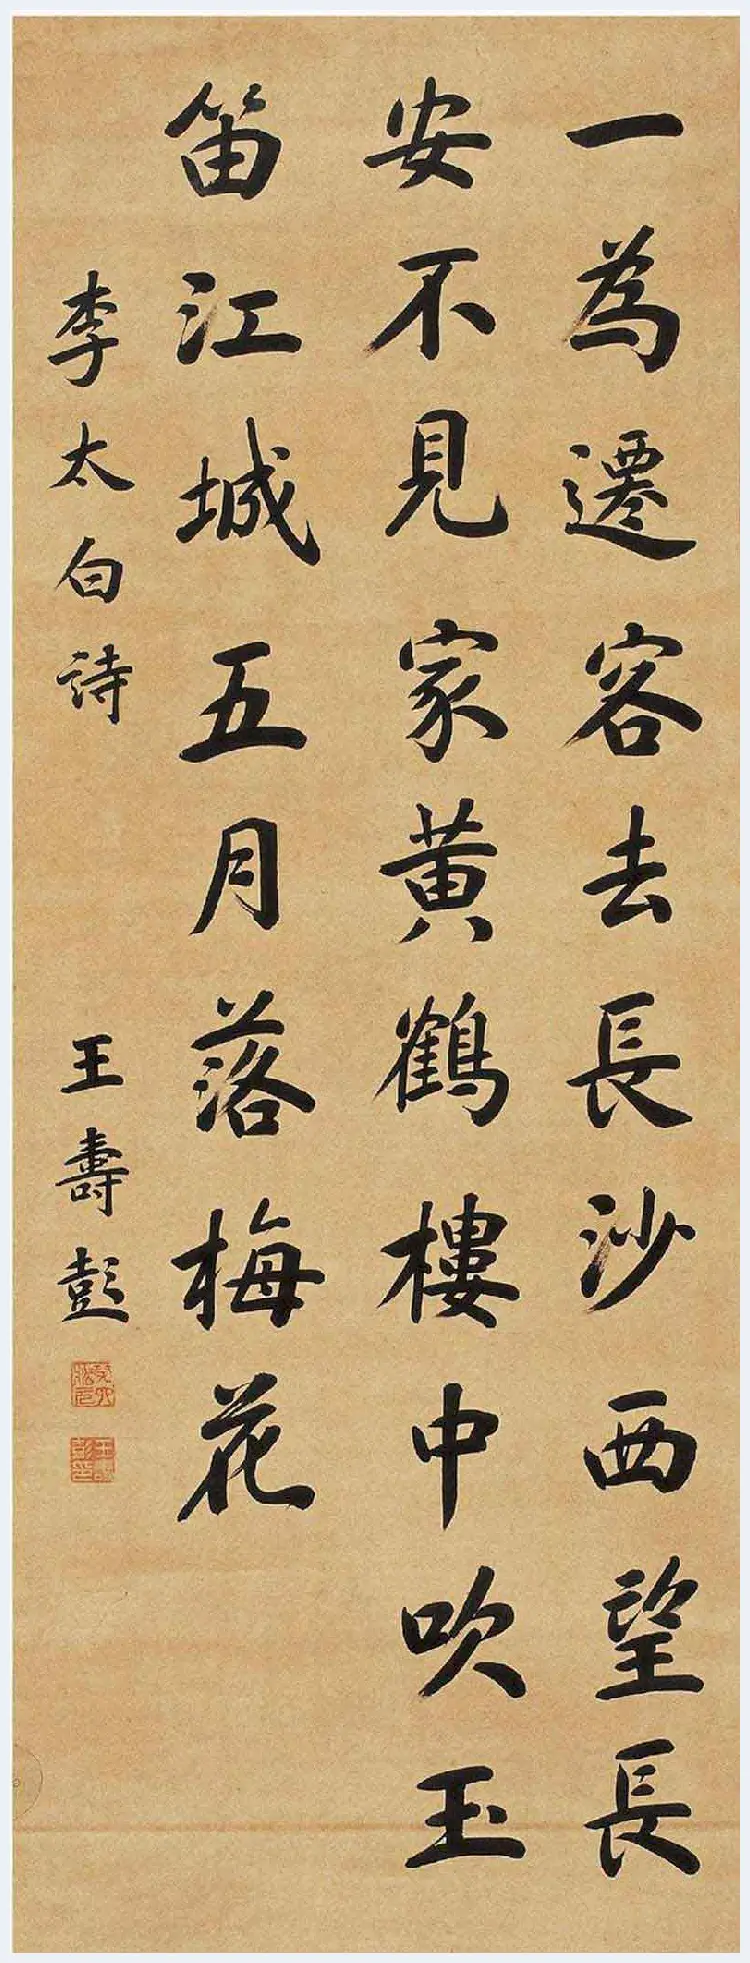 一為遷客去長沙西望長
安不見家黄鶴樓中吹玉
笛江城五月落梅花
李太白詩
王壽彭